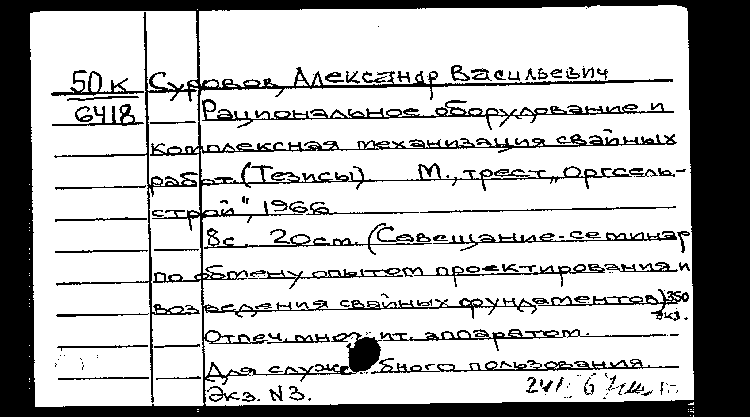 50к Суровов, Александр Васильевич
6418 Рациональное оборудование и
комплексная механизация свайных
работ. (Тезисы) М., трест „Оргсель-
строй", 1966
8с. 20см. (Совещание-семинар
по обмену опытом проектирования и
возведения свайных фундаментов) 350
экз.
Отпеч. множит. аппаратом.
Для служебного пользования.
Экз. N3.